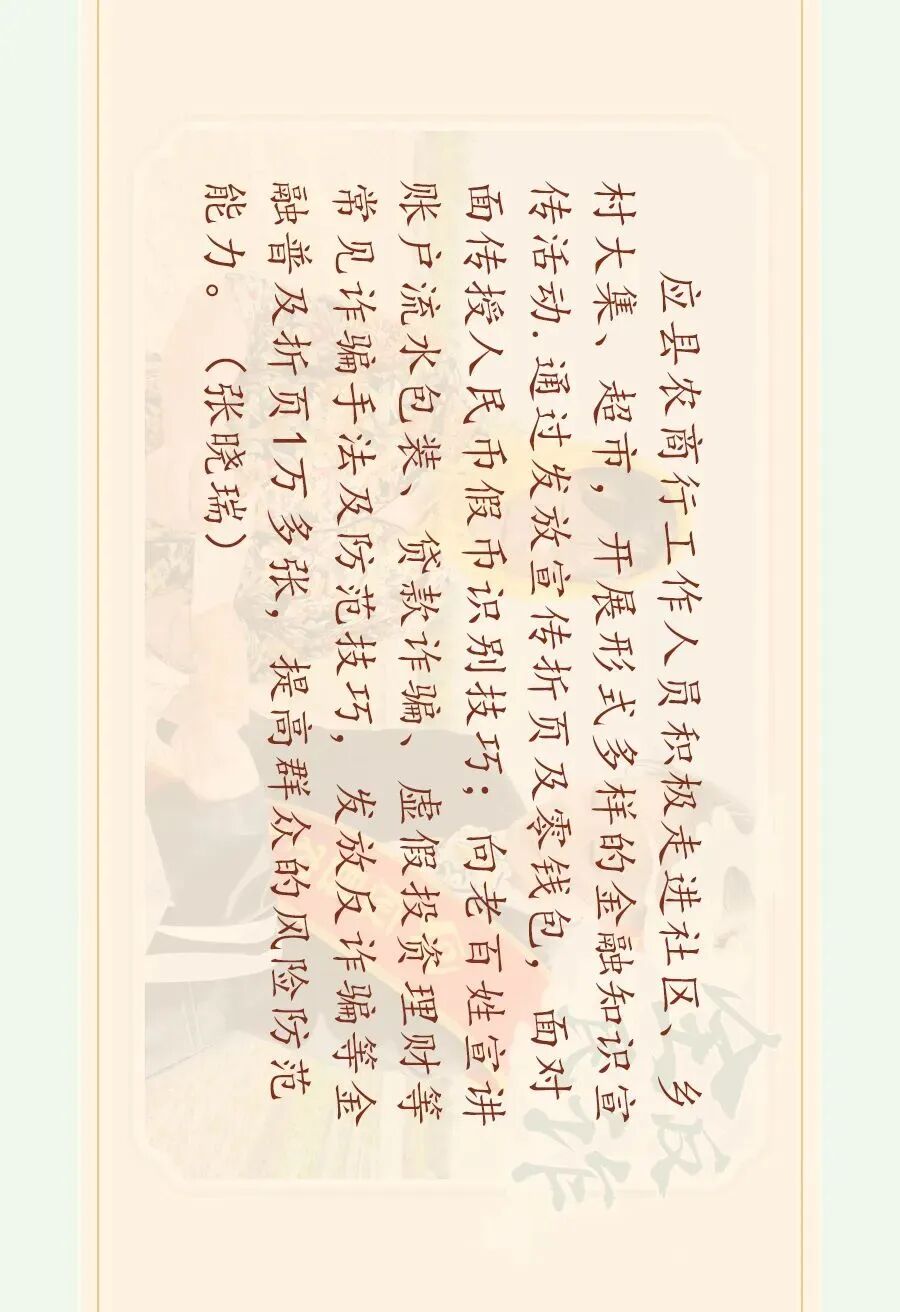 应县农商行工作人员积极走进社区、乡
村大集、超市，开展形式多样的金融知识宣
传活动.通过发放宣传折页及零钱包，面对
面传授人民币假币识别技巧；向老百姓宣讲
账户流水包装、贷款诈骗、虚假投资理财等
常见诈骗手法及防范技巧，发放反诈骗等金
融普及折页1万多张，提高群众的风险防范
能力。（张晓瑞）